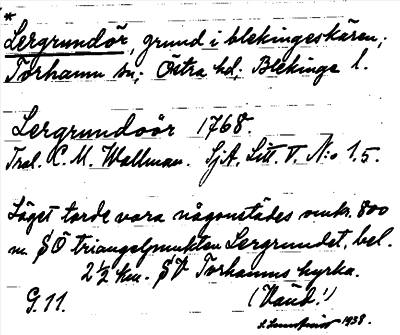 *
Lergrundör, grund i blekingeskären;
Torhamn sn; Östra hd; Blekinge l.
Lergrundoör 1768.
Tral. C. M. Wallman. SjA, Litt. V. N:o 1.5.
Läget torde vara någonstädes omkr. 800
m. SÖ triangelpunkten Lergrundet, bel.
2½ km. SV Torhamns kyrka.
G.11. (Vänd!)
1938.